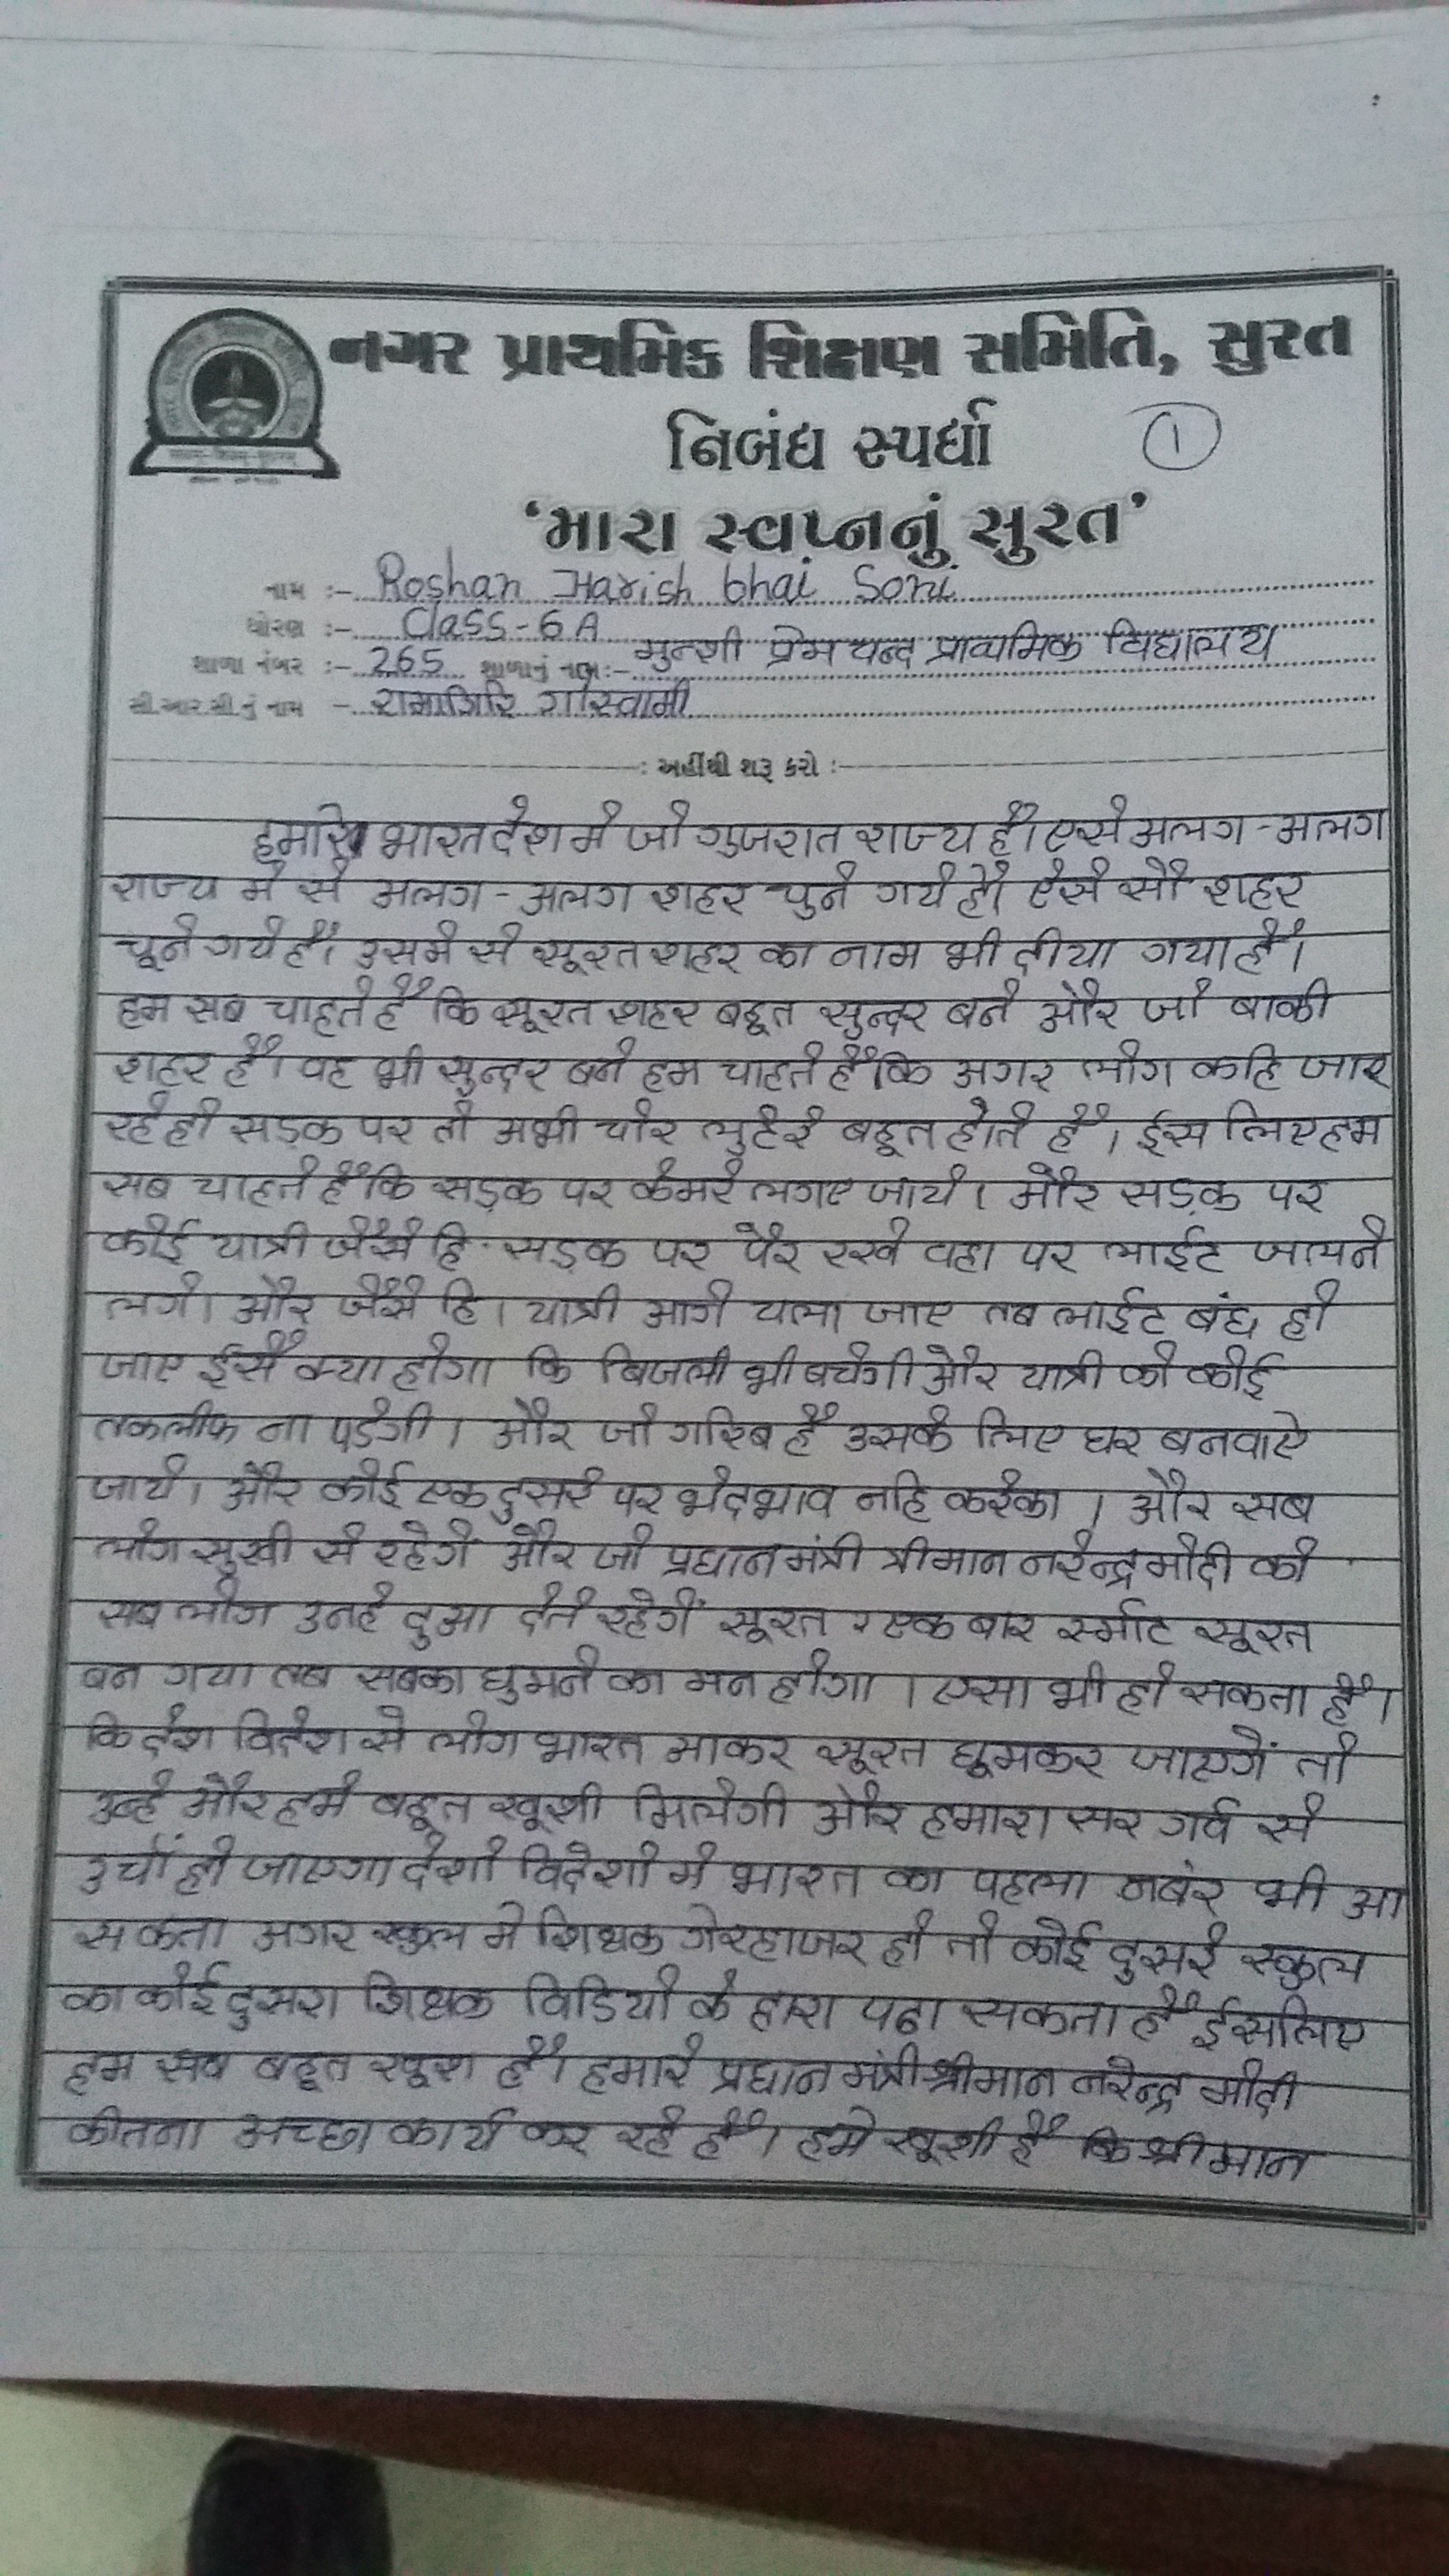 નગર પ્રાથમિક શિક્ષણ સમિતિ, સુરત
નિબંધ સ્પર્ધા
1
'મારા સ્વપ્નનું સુરત'
નામ :- Roshan Harish bhai Soni
ધોરણ :- Class-6 A
શાળા નંબર :- 265 શાળાનું નામ :- मुन्शी प्रेमचन्द प्राथमिक विद्यालय
સી.આર.સી.નું નામ - रामागिरि गोस्वामी
: અહીંથી શરૂ કરો :
हमारे भारत देश मे जो गुजरात राज्य है। एसे अलग-अलग
राज्य मे से अलग-अलग शहर चुने गये है। ऐसे सौ शहर
चूने गये है। उसमे से सूरत शहर का नाम भी दीया गया है।
हम सब चाहते है कि सूरत शहर बहूत सुन्दर बने और जो बाकी
शहर है। वह भी सुन्दर बने हम चाहते है कि अगर लोग कहि जार
रहे हो सड़क पर तो अभी चोर लुटेरे बहूत होते है। ईस लिए हम
सब चाहते है कि सड़क पर केमरे लगाए जाये। और सड़क पर
कोई यात्री जैसे हि सड़क पर पैर रखे वहा पर लाईट जालने
लगे। और जैसे हि। यात्री आगे चला जाए तब लाईट बंध हो
जाए ईसे क्या होगा कि बिजली भी बचेगी और यात्री को कोई
तकलीफ ना पडेगी। और जो गरिब है उसके लिए घर बनवाऐ
जाये। और कोई एक दुसरे पर भेदभाव नहि करेका। और सब
लोग सुखी से रहेगे और जो प्रधानमंत्री श्रीमान नरेन्द्र मोदी को
सब लोग उनहे दुआ देते रहेगें सूरत एक बार स्र्माट सूरत
बन गया तब सबका घुमने का मन होगा। एसा भी हो सकता है।
कि देश विदेश से लोग भारत आकर सूरत घूमकर जाएगें तो
उन्हे और हमे बहूत खूशी मिलेगी और हमारा सर गर्व से
उचाँ हो जाएगा देशो विदेशो मे भारत का पहला नबंर भी आ
सकता अगर स्कुल मे शिक्षक गेरहाजर हो तो कोई दुसरे स्कुल
का कोई दुसरा शिक्षक विडियो के द्वारा पढा सकता है ईसलिए
हम सब बहूत खूश है। हमारे प्रधान मंत्री श्रीमान नरेन्द्र मोदी
कीतना अच्छा कार्य कर रहे है। हमे खूशी है कि श्रीमान